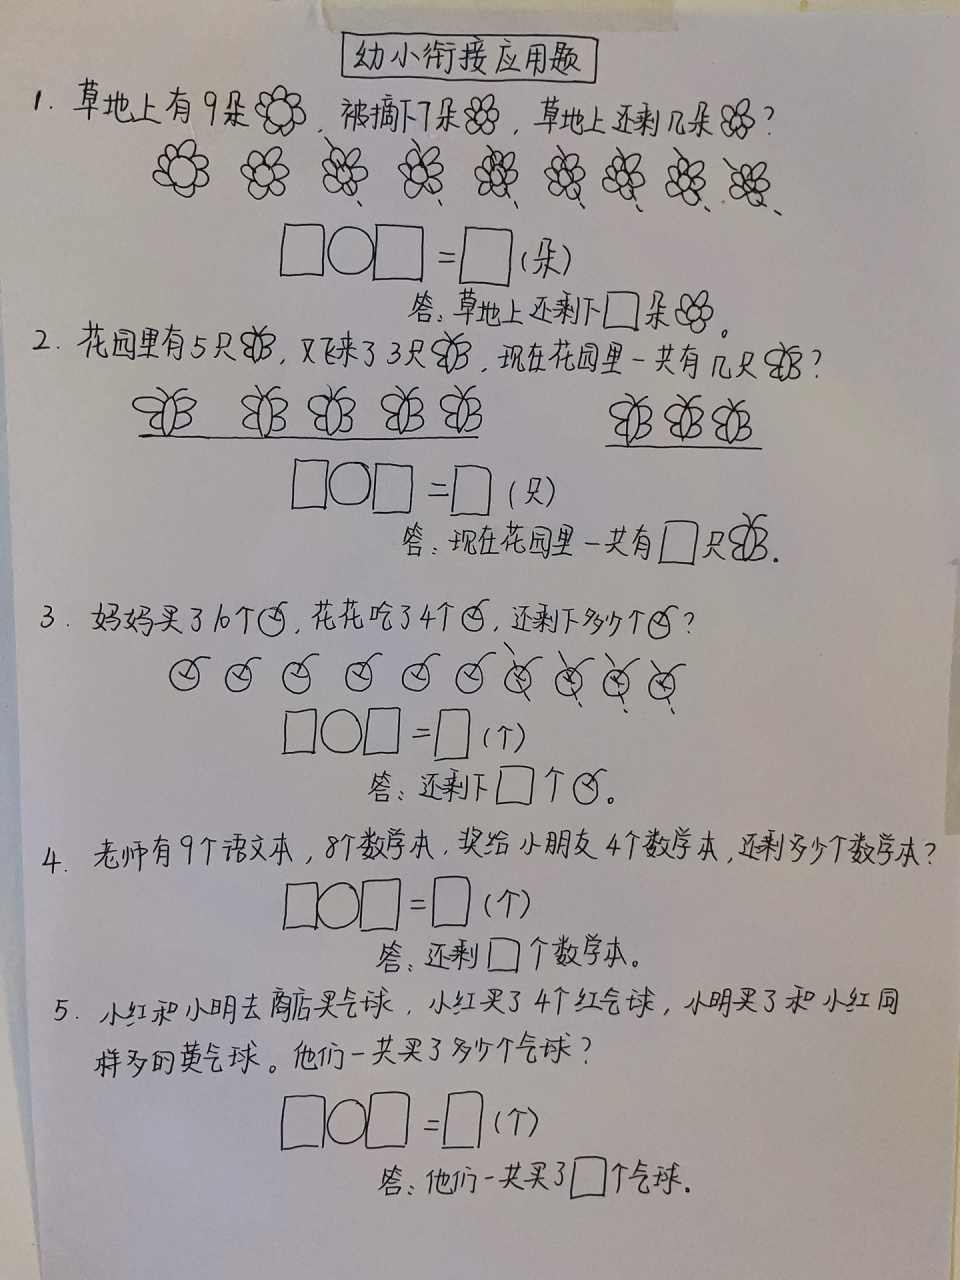 幼小衔接应用题
1. 草地上有9朵, 被摘下7朵, 草地上还剩几朵?
□○□=□(朵)
答:草地上还剩下□朵。
2. 花园里有5只, 又飞来了3只, 现在花园里一共有几只?
□○□=□(只)
答:现在花园里一共有□只.
3. 妈妈买了10个, 花花吃了4个, 还剩下多少个?
□○□=□(个)
答:还剩下□个。
4. 老师有9个语文本, 8个数学本, 奖给小朋友4个数学本, 还剩多少个数学本?
□○□=□(个)
答:还剩□个数学本。
5. 小红和小明去商店买气球, 小红买了4个红气球, 小明买了和小红同
样多的黄气球。他们一共买了多少个气球?
□○□=□(个)
答:他们一共买了□个气球.